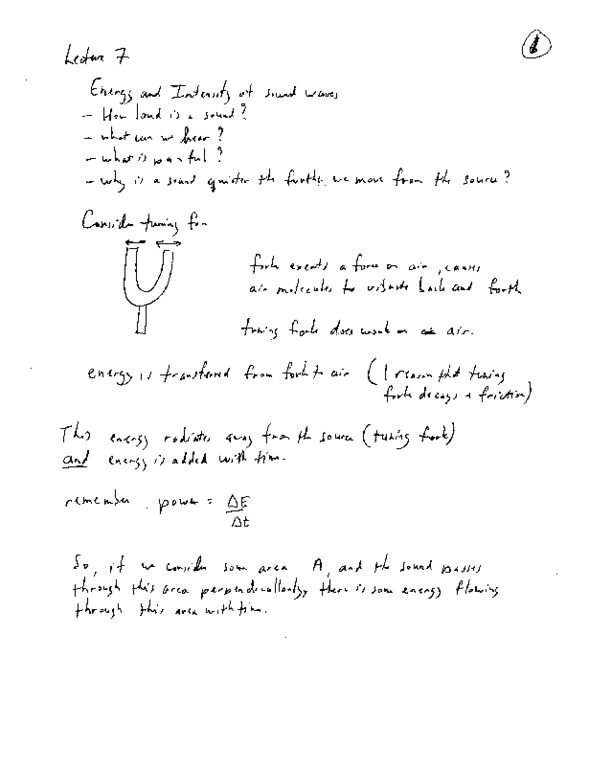 1
Lecture 7
Energy and Intensity of sound waves
- How loud is a sound?
- what can we hear?
- what is painful?
- why is a sound quieter the further we move from the source?
Consider tuning for
fork exerts a force on air, causes
air molecules to vibrate back and forth
tuning fork does work on air.
energy is transferred from fork to air (1 reason that tuning
fork decays + friction)
This energy radiates away from the source (tuning fork)
and energy is added with time.
remember power = ΔE
Δt
So, if we consider some area A, and the sound passes
through this area perpendicularly, there is some energy flowing
through this area with time.